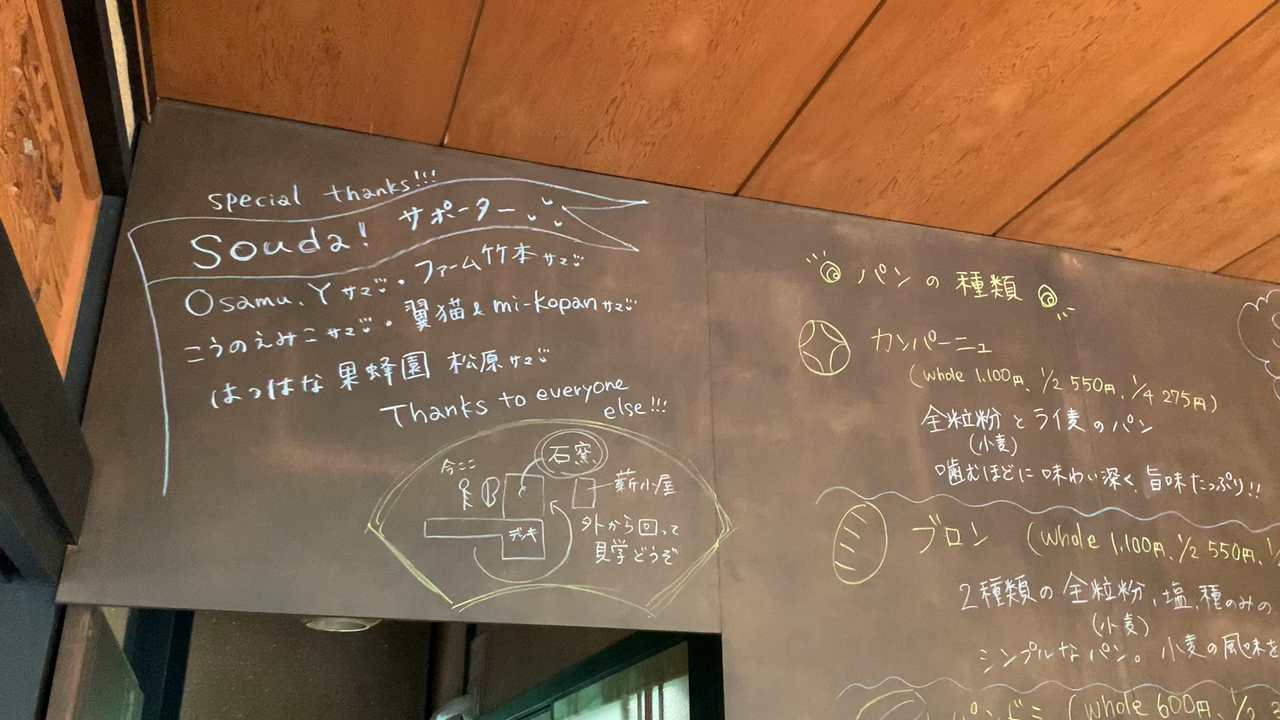 special thanks!!!
Souda! サポーター
Osamu.Yサマ・ファーム竹本サマ
こうのえみこサマ・翼猫&mi-kopanサマ
はっはな果蜂園 松原サマ
Thanks to everyone
else!!!
今ここ
石窯
薪小屋
デッキ
外から回って
見学どうぞ
パンの種類
カンパーニュ
(whole 1,100円、1/2 550円、1/4 275円)
全粒粉とライ麦のパン
(小麦)
噛むほどに味わい深く、旨味たっぷり!!
ブロン (whole 1,100円、1/2 550円、1/
2種類の全粒粉、塩、種のみの
(小麦)
シンプルなパン。小麦の風味を
(whole 600円、1/2 3